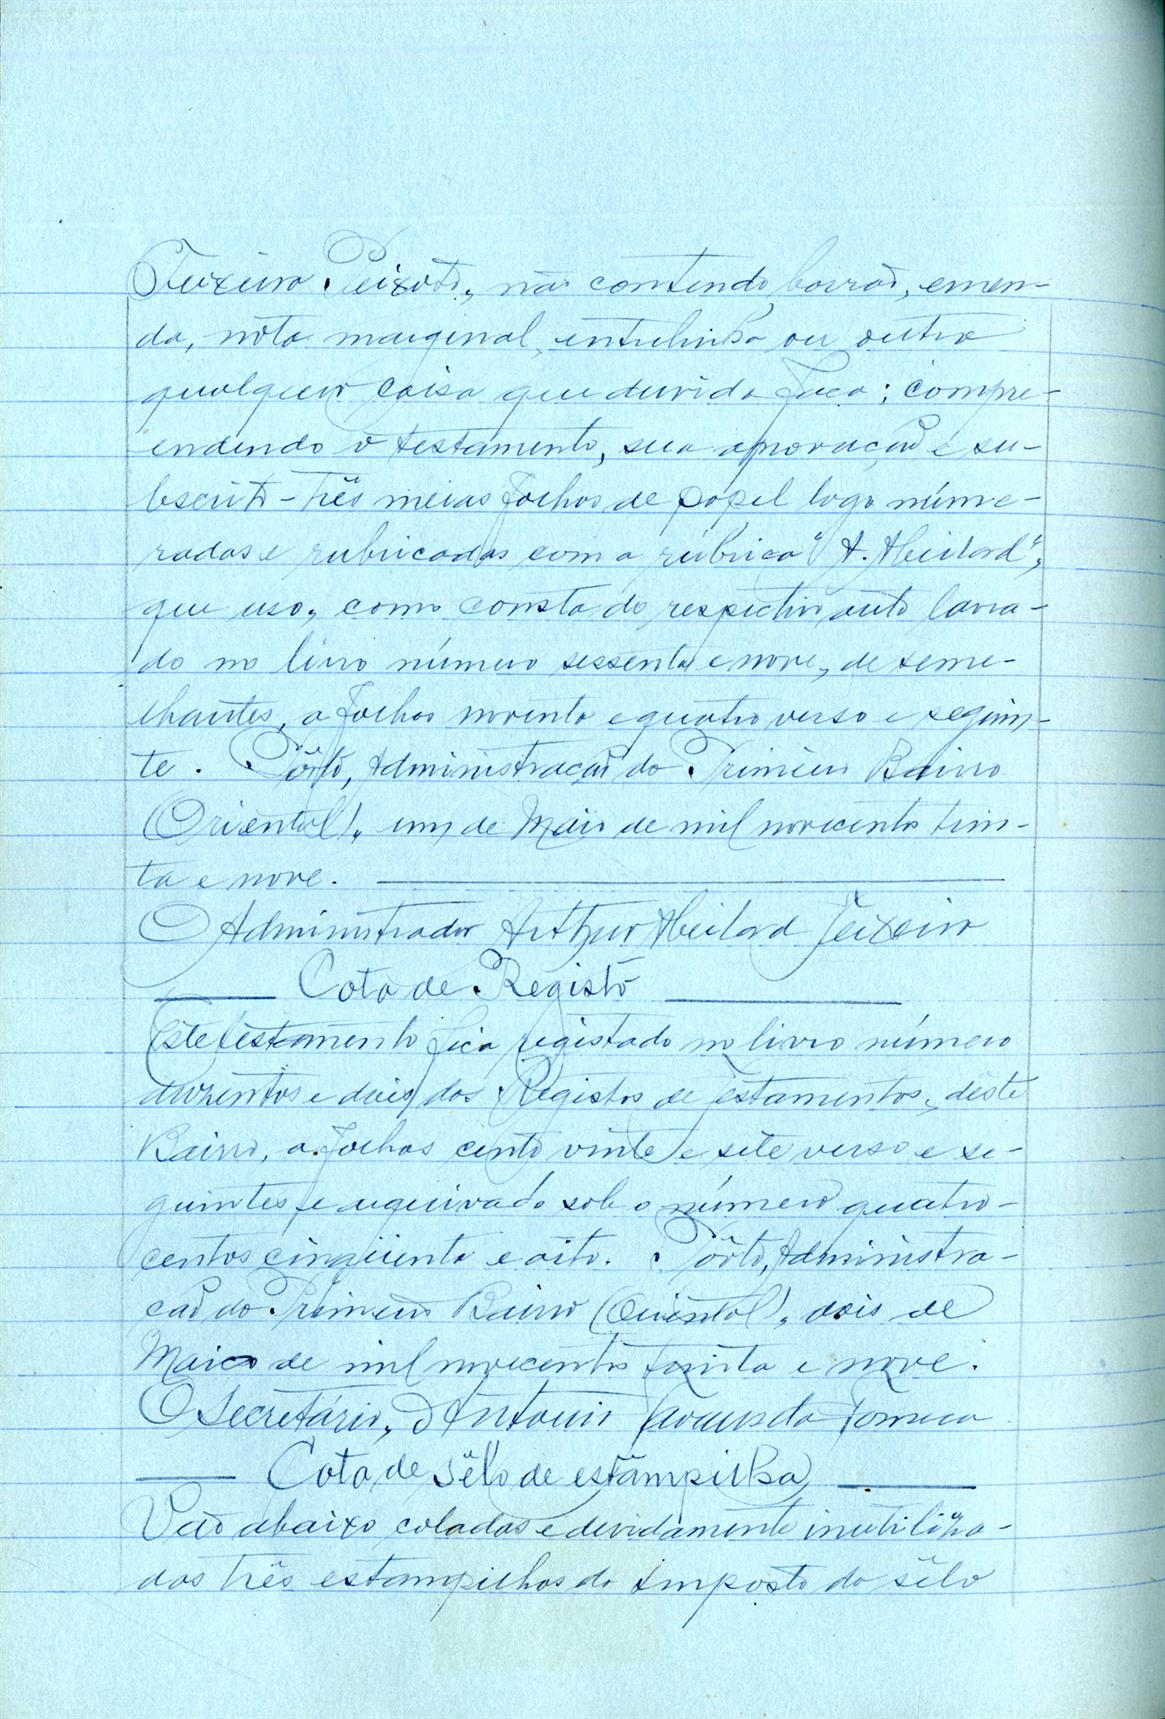 Teixeira Peixoto, não contendo borrão, emen-
da, nóta marginal, entrelinha ou outra
qualquer coisa que duvida faça; compre-
endendo o testamento, sua aprovação e su-
bscrito - três meias folhas de papel logo núme-
radas e rubricadas com a rúbrica "A. Abeilard",
que uso, como consta do respectivo auto lavra-
do no livro número sessenta e nove, de seme-
lhantes, a folhas noventa e quatro verso e seguin-
te. Pôrto, Administração do Primeiro Bairro
(Oriental), um de Maio de mil novecentos trin-
ta e nove.
O Administrador Arthur Abeilard Teixeira
Cota de Registo
Este testamento fica registado no livro número
duzentos e dois dos Registos de Testamentos, dêste
Bairro, a folhas cento vinte e sete verso e se-
guintes e arquivado sob o número quatro-
centos cinqüenta e oito. Pôrto, Administra-
ção do Primeiro Bairro (Oriental), dois de
Maio de mil novecentos trinta e nove.
O Secretário, António Fonseca
Cota de sêlo de estampilha
Vão abaixo coladas e devidamente inutiliza-
das três estampilhas do imposto do sêlo